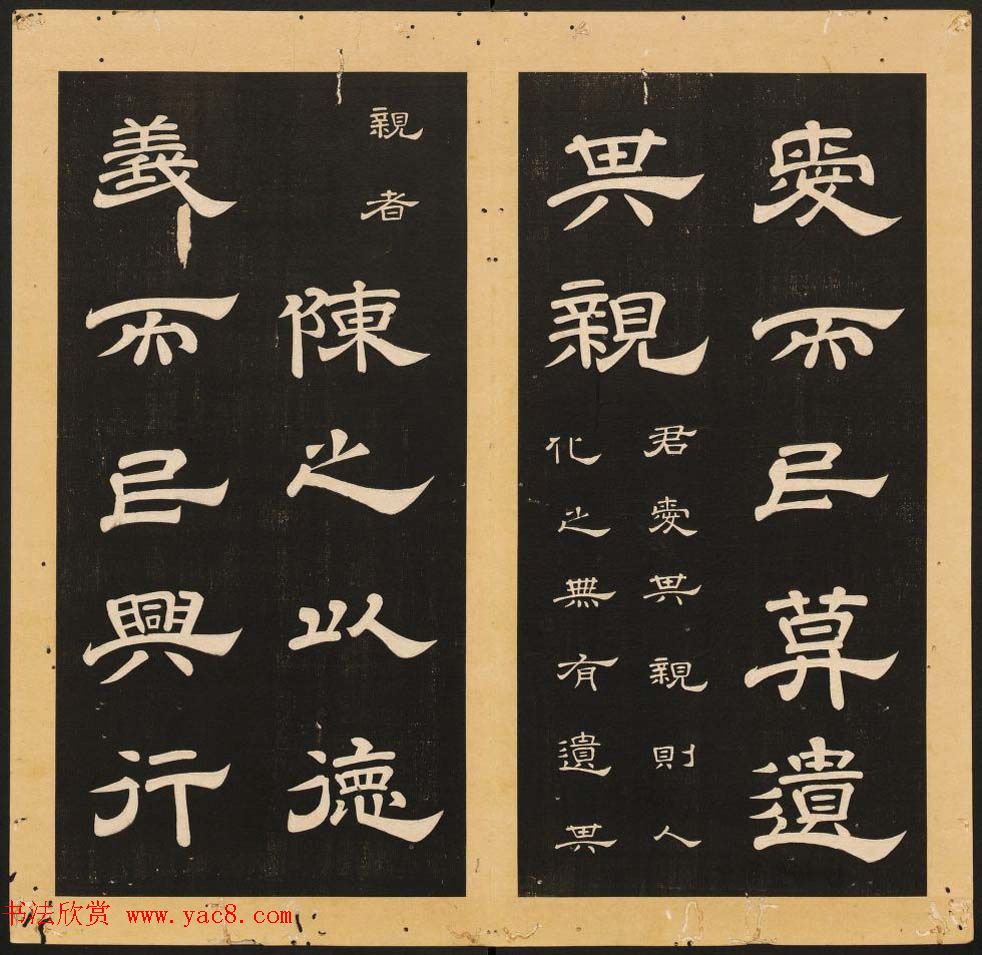 愛而民莫遺
其親
君愛其親則人
化之無有遺其
親者
陳之以德
義而民興行
书法欣赏 www.yac8.com